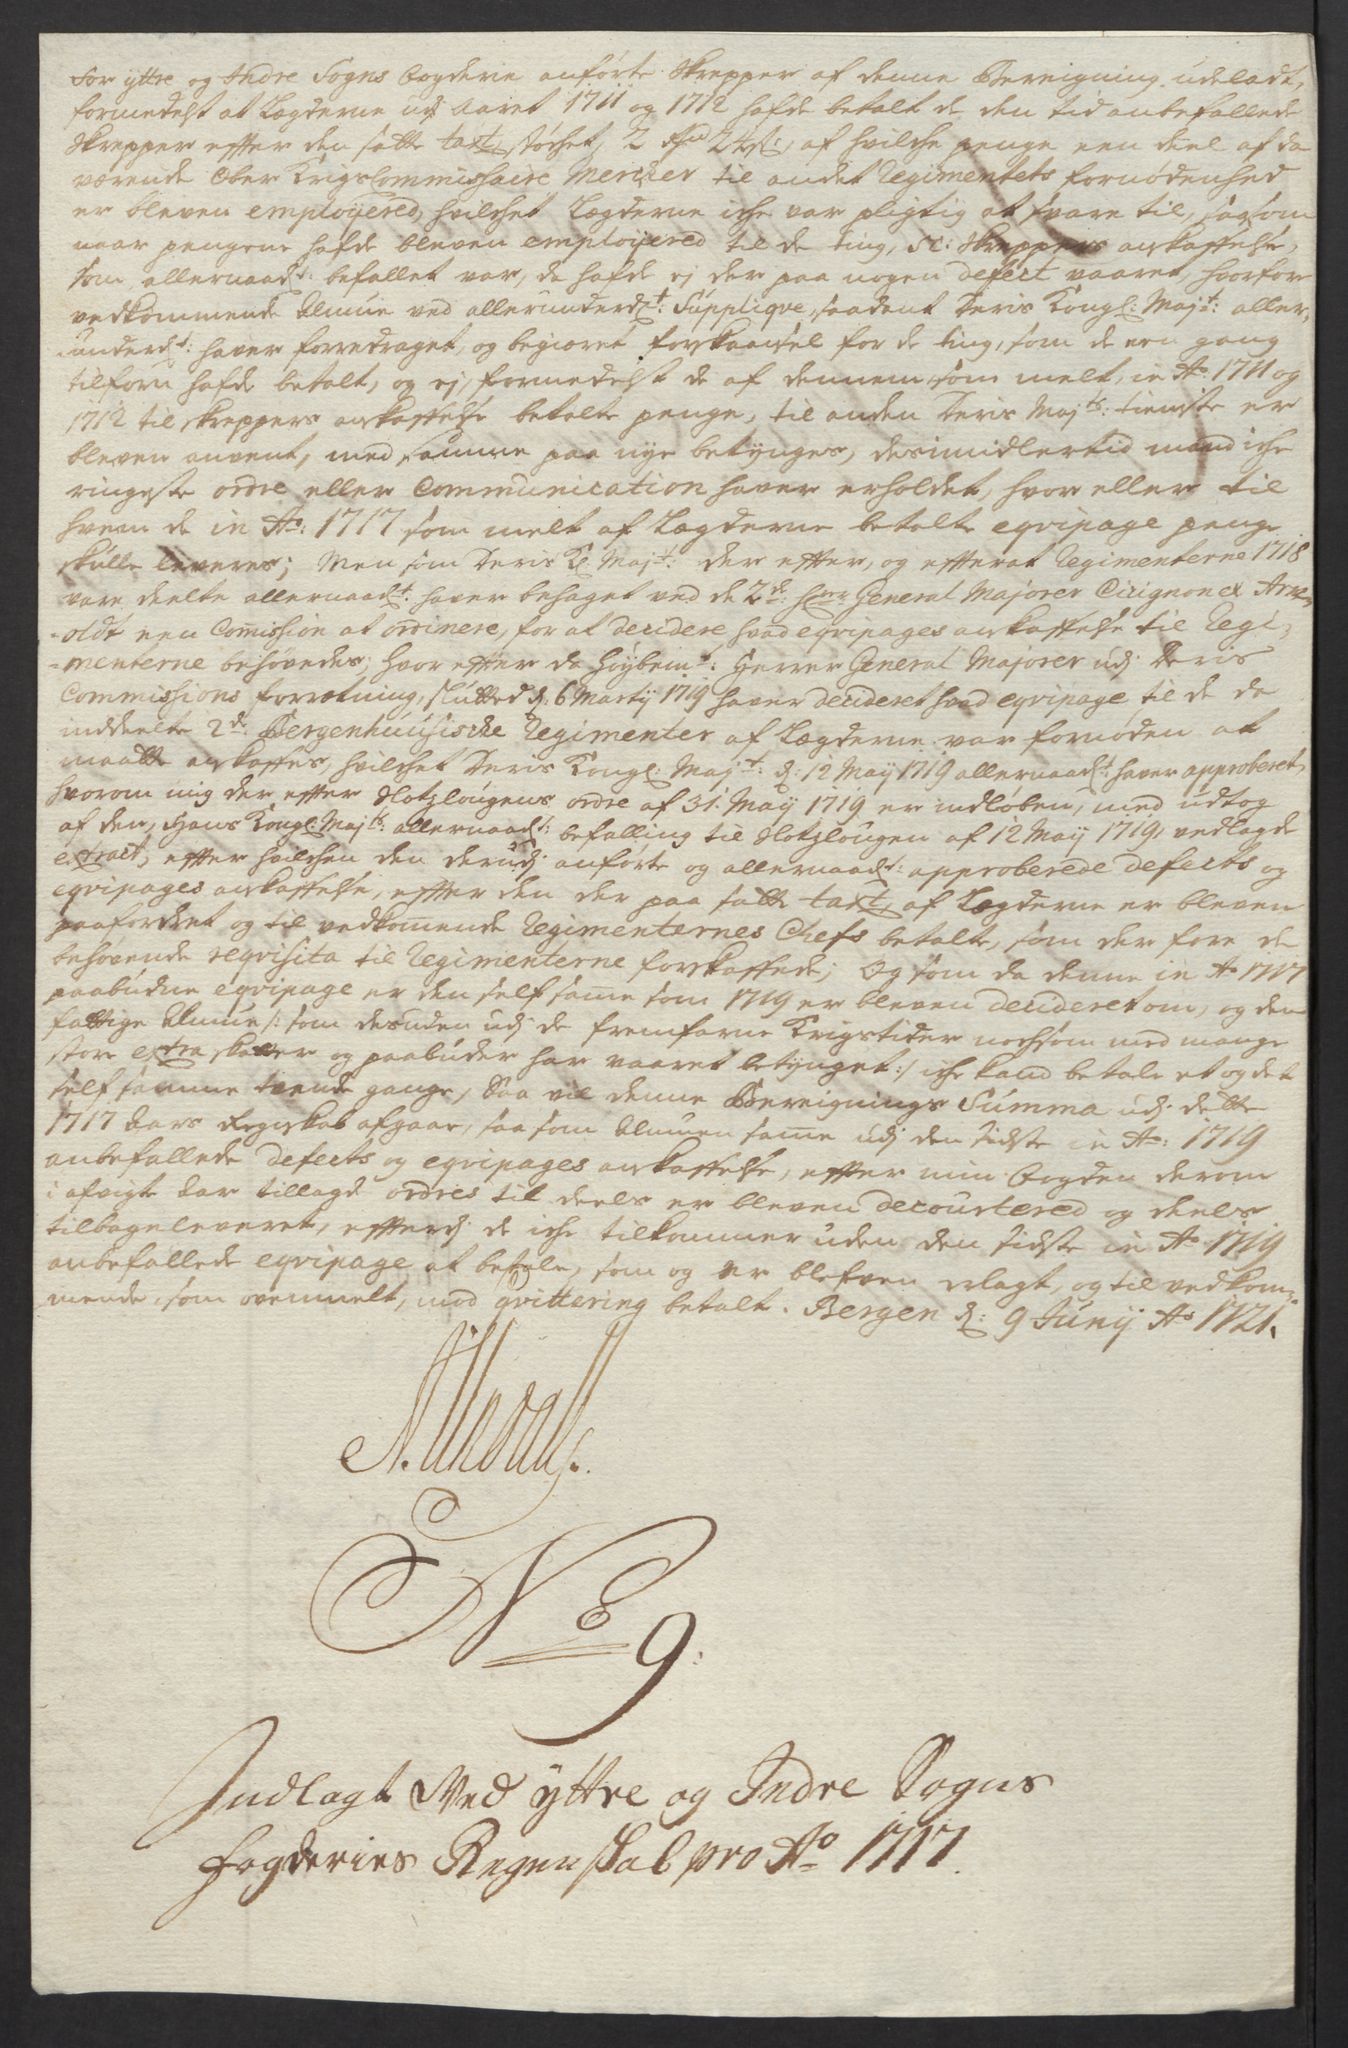 for yttre og Indre Sogns Fogderie anførte Skrepper af denne Bereigning udeladt,
formedelst at Lægderne udj Aaret 1711 og 1712 hafde betalt de den tid anbefallede
Skrepper effter den satte taxt, støchet, 2 24 s:, af hvilche penge een deel af da
værende Ober Krigs Commissaire Mercker til andet Regimentets fornødenhed
er bleven employered, hvilchet Lægderne iche var pligtig at svare til, saasom
naar pengene hafde bleven employered til de ting, sc: Skreppers anskaffelse,
som allernaadst: befallet var, da hafde ej der paa nogen defect vaaret, hvorfor
vedkommende Almue ved allerunderdst: Supplique, saadant Deris Kongl: Majt: aller,
underdst: haver forredraget, og begiæret forskaansel for de ting, som de een gang
tilforn hafde betalt, og ej, formedelst de af dennem, som melt, in Ao: 1711 og
1712 til skreppers anskaffelse betalte penge, til anden Deris Majts: tieneste er
bleven anvent, med samme paa nye betynges, desimidlertid mand iche
ringeste ordre eller Communication haver erholdet, hvor eller til
hvem de in Ao: 1717 som melt af Lægderne betalte eqvipage penge
skulle leveres; Men som Deris Kl: Majt: der effter, og efferat Regimenterne 1718
vare deelte allernaadst: haver behaget ved de 2de: hrr: General Majorer Cicignon et Arn,
=oldt een Commission at ordinere, for at decidere hvad eqvipages anskaffelse til Regi,
=menterne behøvedes; hvor effter da høybemte: Herrer General Majorer udj Deris
Commissions forretning, slutted d: 6 Martij 1719 haver decideret hvad eqvipage til de da
inddeelte 2de: Bergenhuusische Regimenter af Lægderne var fornøden at
maatte anskaffes, hvilchet Deris Kongl: Majt: d: 12 Maij 1719 allernaadst: haver approberet,
hvorom mig der effter Slotzlougens ordre af 31. Maij 1719 er indløben, med udtog
af den, Hans Kongl: Majts: allernaadst: befalling til Slotzlougen af 12 Maij 1719, vedlagde
extract, effter hvilchen den derudj anførte og allernaadst: approberede defects og
eqvipages anskaffelse, effter den der paa satte taxt, af Lægderne er bleven
paafordret og til vedkommende Regimenternes Chefs betalt, som der fore de
behøvende reqvisita til Regimenterne forskaffede; Og som da denne in Ao 1717
paabudne eqvipage er den selfsamme som 1719 er bleven decideret om, og den
fattige Almue /: som desuden udj de fremfarne Krigstider nochsom med mange
store extra skatter og paabuder har vaaret betynget :/ iche kand betale et og det
selfsamme tvende gange, Saa vil denne Bereignings Summa udj dette
1717 Aars Regnskab afgaae, saasom Almuen samme udj den sidste in Ao: 1719
anbefallede defects og eqvipages anskaffelse, effter min Fogden derom
i afvigte Aar tillagde ordres til deels er bleven decourtered og deels
tilbage leveret, effterdj de iche tilkommer uden den sidste in Ao 1719
anbefallede eqvipage at betale, som og er blefven erlagt, og til vedkom,
mende, som ovenmelt, mod qvittering betalt. Bergen d: 9 Junij Ao 1721.
No
9:
Indlagt Ved yttre og Indre Sogns
fogderies Regenskab pro Ao 1717.